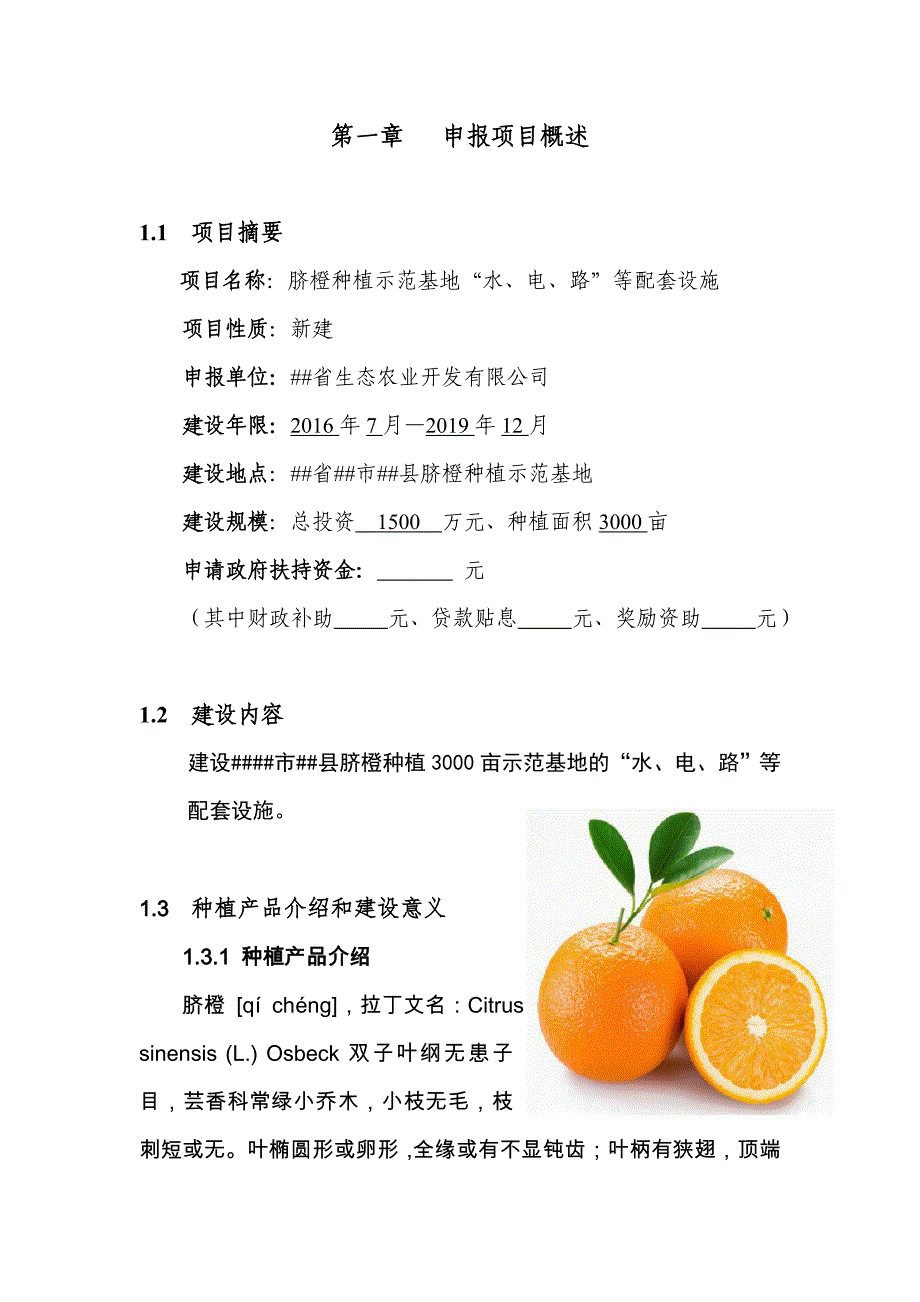 第一章 申报项目概述
1.1 项目摘要
项目名称：脐橙种植示范基地“水、电、路”等配套设施
项目性质：新建
申报单位：##省生态农业开发有限公司
建设年限：2016 年 7 月—2019 年 12 月
建设地点：##省##市##县脐橙种植示范基地
建设规模：总投资 1500 万元、种植面积 3000 亩
申请政府扶持资金：_______ 元
（其中财政补助_____元、贷款贴息_____元、奖励资助_____元）
1.2 建设内容
建设####市##县脐橙种植 3000 亩示范基地的“水、电、路”等
配套设施。
1.3 种植产品介绍和建设意义
1.3.1 种植产品介绍
脐橙 [qí chéng]，拉丁文名：Citrus
sinensis (L.) Osbeck 双子叶纲无患子
目，芸香科常绿小乔木，小枝无毛，枝
刺短或无。叶椭圆形或卵形,全缘或有不显钝齿；叶柄有狭翅，顶端